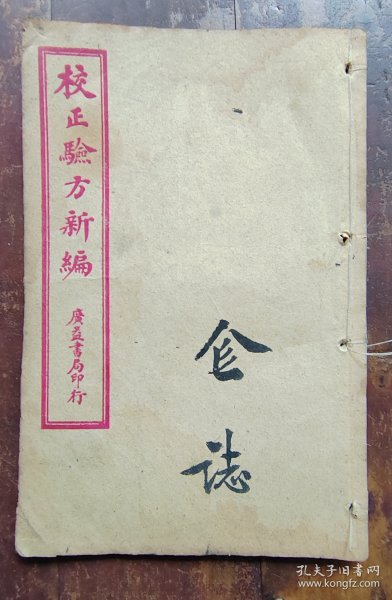 校正驗方新編
廣益書局印行
誌
孔夫子旧书网
www.kongfz.com